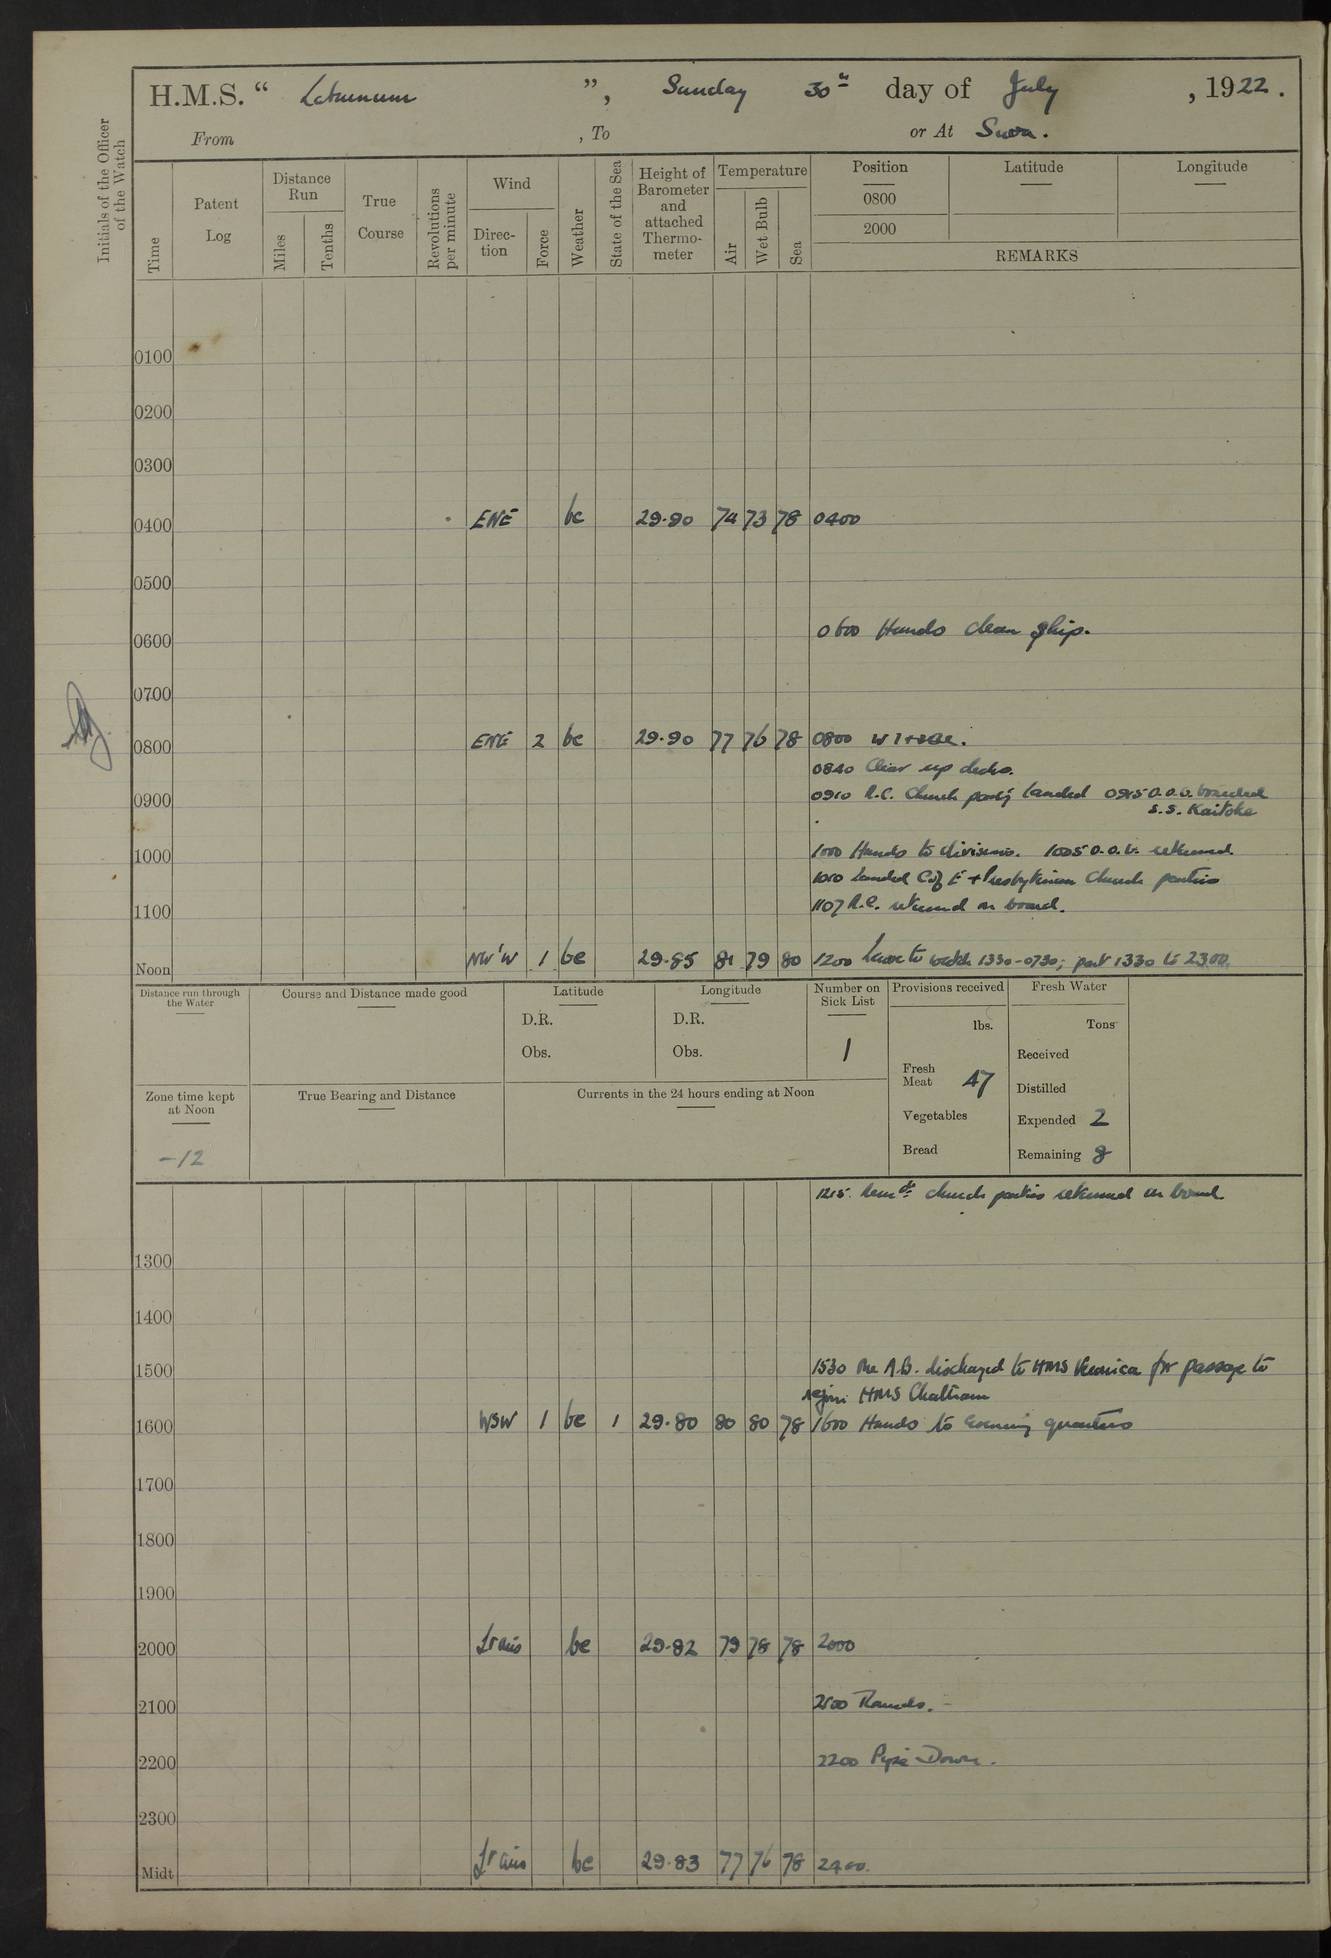 H.M.S. “ Laburnum ”, Sunday 30th day of July , 1922.
From , To or At Suva.
Initials of the Officer of the Watch
Time
Patent Log
Distance Run
Miles
Tenths
True Course
Revolutions per minute
Wind
Direc-tion
Force
Weather
State of the Sea
Height of Barometer and attached Thermo-meter
Temperature
Air
Wet Bulb
Sea
Position Latitude Longitude
0800
2000
REMARKS
0100
0200
0300
0400 ENE bc 29.90 74 73 78 0400
0500
0600 0600 Hands clean ship.
0700
0800 ENE 2 bc 29.90 77 76 78 0800
0840 Clear up decks.
0900 0910 R.C. Church party landed 0915 O.O.G. boarded
S.S. Kaitoke
1000 1000 Hands to divisions. 1005 O.O.G. returned
1010 Landed C of E + Presbyterian Church parties
1100 1107 R.C. returned on board.
Noon NW'W 1 bc 29.85 81 79 80 1200 Leave to watch 1330-0730; part 1330 to 2300.
Distance run through the Water
Course and Distance made good
Latitude
D.R.
Obs.
Longitude
D.R.
Obs.
Number on Sick List
1
Provisions received
lbs.
Fresh Meat 47
Vegetables
Bread
Fresh Water
Tons
Received
Distilled
Expended 2
Remaining 8
Zone time kept at Noon
-12
True Bearing and Distance
Currents in the 24 hours ending at Noon
1215. Remdr church parties returned on board
1300
1400
1500 1530 One A.B. discharged to HMS Veronica for passage to
rejoin HMS Chatham
1600 WSW 1 bc 1 29.80 80 80 78 1600 Hands to Evening quarters
1700
1800
1900
2000 Lt airs bc 29.82 79 78 78 2000
2100 2100 Rounds.
2200 2200 Pipe Down.
2300
Midt Lt airs bc 29.83 77 76 78 2400.